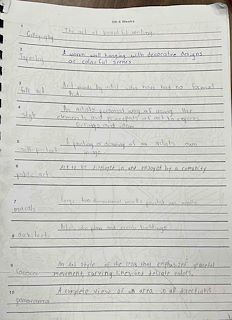 Ch 6 Vocab
1 Calligraphy The art of beautiful writing.
2 Tapestry A woven wall hanging with decorative designs or colorful scenes
3 folk art Art made by artists who have had no formal
4 style An artists personal way of using the elements and principles of art to express feelings and ideas
5 self-portrait A painting or drawing of an artists own image
6 public art Art to be displayed in and enjoyed by a community
7 murals Large two-dimensional works painted on walls
8 architects Artists who plan and create buildings
9 Rococo An Art style of the 1700s that emphasized graceful movement, curving lines, and delicate colors.
10 panorama A complete view of an area in all directions